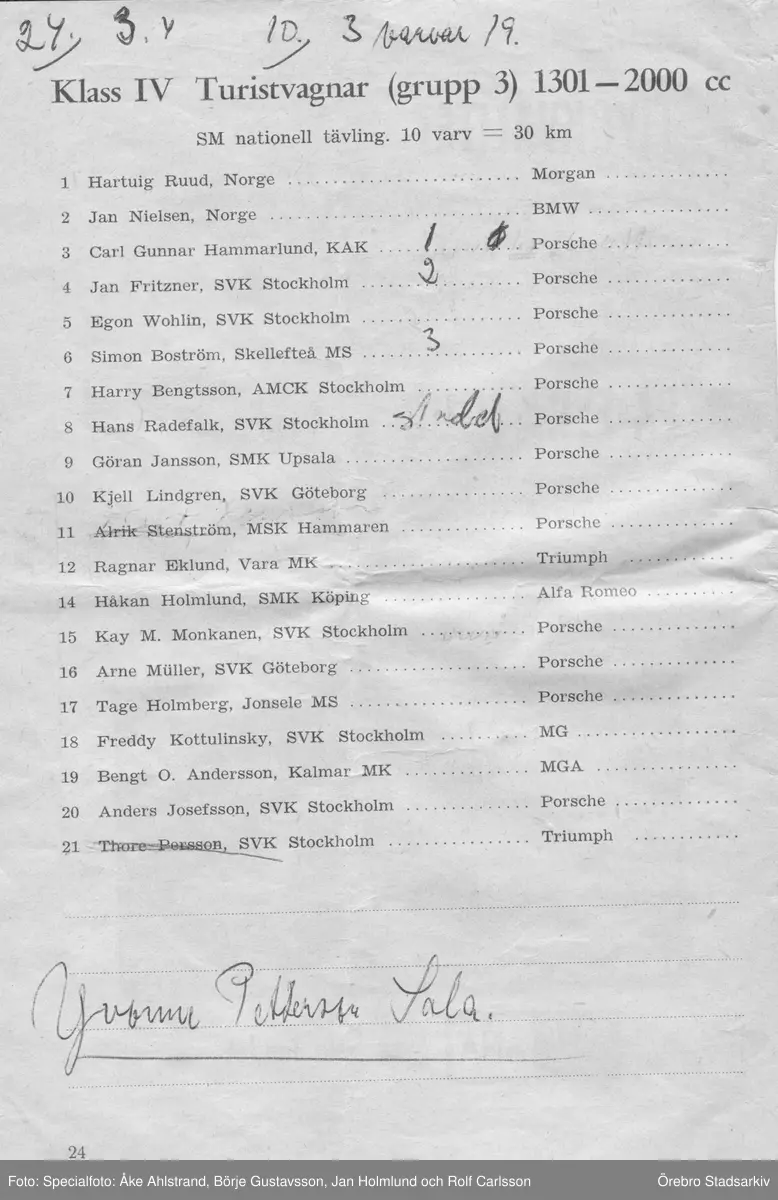 24, 3. 10, 3 19.
Klass IV Turistvagnar (grupp 3) 1301—2000 cc
SM nationell tävling. 10 varv = 30 km
1 Hartuig Ruud, Norge ........................ Morgan ..............
2 Jan Nielsen, Norge ........................ BMW ..............
3 Carl Gunnar Hammarlund, KAK ..... 1 ..... Porsche ..............
4 Jan Fritzner, SVK Stockholm ..... 2 ..... Porsche ..............
5 Egon Wohlin, SVK Stockholm .............. Porsche ..............
6 Simon Boström, Skellefteå MS ..... 3 ..... Porsche ..............
7 Harry Bengtsson, AMCK Stockholm .......... Porsche ..............
8 Hans Radefalk, SVK Stockholm .......... Porsche ..............
9 Göran Jansson, SMK Upsala .............. Porsche ..............
10 Kjell Lindgren, SVK Göteborg .............. Porsche ..............
11 Alrik Stenström, MSK Hammaren .......... Porsche ..............
12 Ragnar Eklund, Vara MK .............. Triumph ..............
14 Håkan Holmlund, SMK Köping .............. Alfa Romeo ..........
15 Kay M. Monkanen, SVK Stockholm .......... Porsche ..............
16 Arne Müller, SVK Göteborg .............. Porsche ..............
17 Tage Holmberg, Jonsele MS .............. Porsche ..............
18 Freddy Kottulinsky, SVK Stockholm .......... MG ..............
19 Bengt O. Andersson, Kalmar MK .......... MGA ..............
20 Anders Josefsson, SVK Stockholm .......... Porsche ..............
21 Thore Persson, SVK Stockholm .............. Triumph ............
Yvonne Petterson Sala.
24
Foto: Specialfoto: Åke Ahlstrand, Börje Gustavsson, Jan Holmlund och Rolf Carlsson Örebro Stadsarkiv